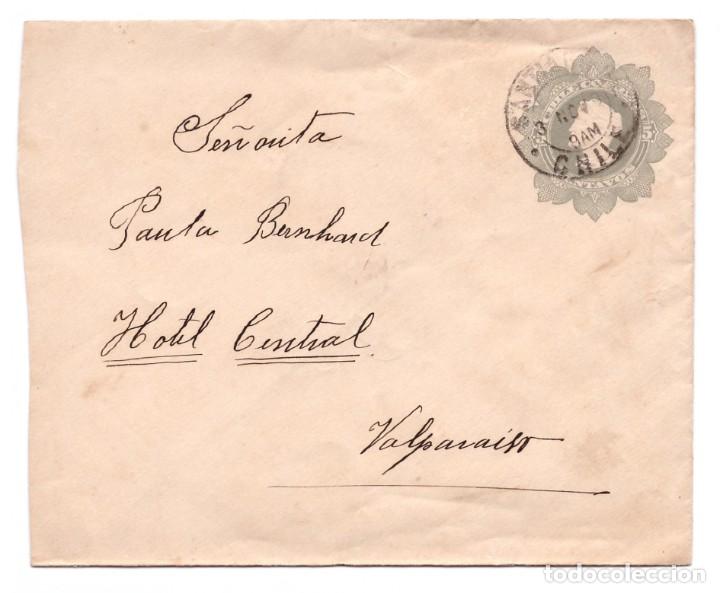 SANTI
3 NOV
9AM
CHILE
5
CENTAVOS
Señorita
Paula Bernhard
Hotel Central
Valparaiso
todocoleccion